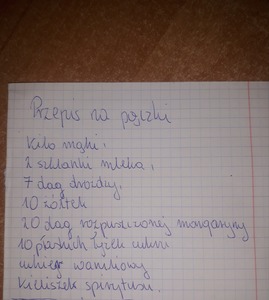 Przepis na pączki
Kilo mąki,
2 szklanki mleka,
7 dag drożdży,
10 żółtek
20 dag rozpuszczonej margaryny
10 płaskich łyżek cukru
cukier waniliowy
Kieliszek spirytusu.